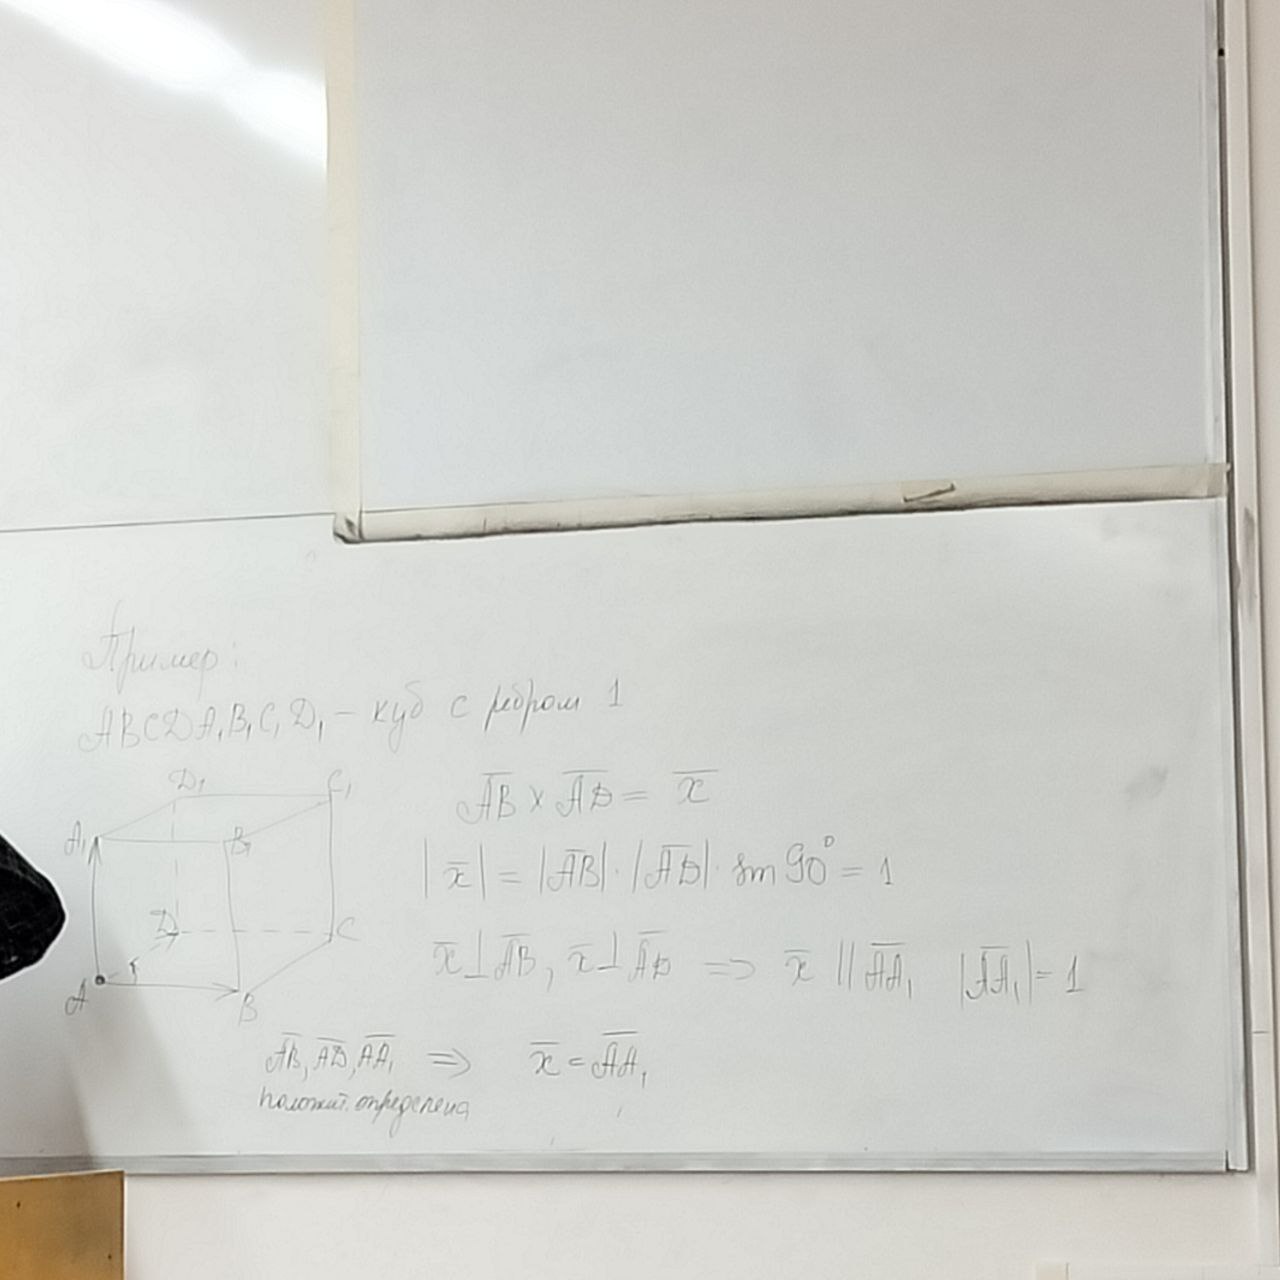 Пример:
ABCDA₁B₁C₁D₁ – куб с ребром 1
D₁ C₁
A₁ B₁
D C
A B
A̅B̅ × A̅D̅ = x̅
|x̅| = |A̅B̅| · |A̅D̅| · sin 90° = 1
x̅ ⊥ A̅B̅, x̅ ⊥ A̅D̅ => x̅ || A̅A̅₁ |A̅A̅₁| = 1
A̅B̅, A̅D̅, A̅A̅₁ => x̅ = A̅A̅₁
положит. определена